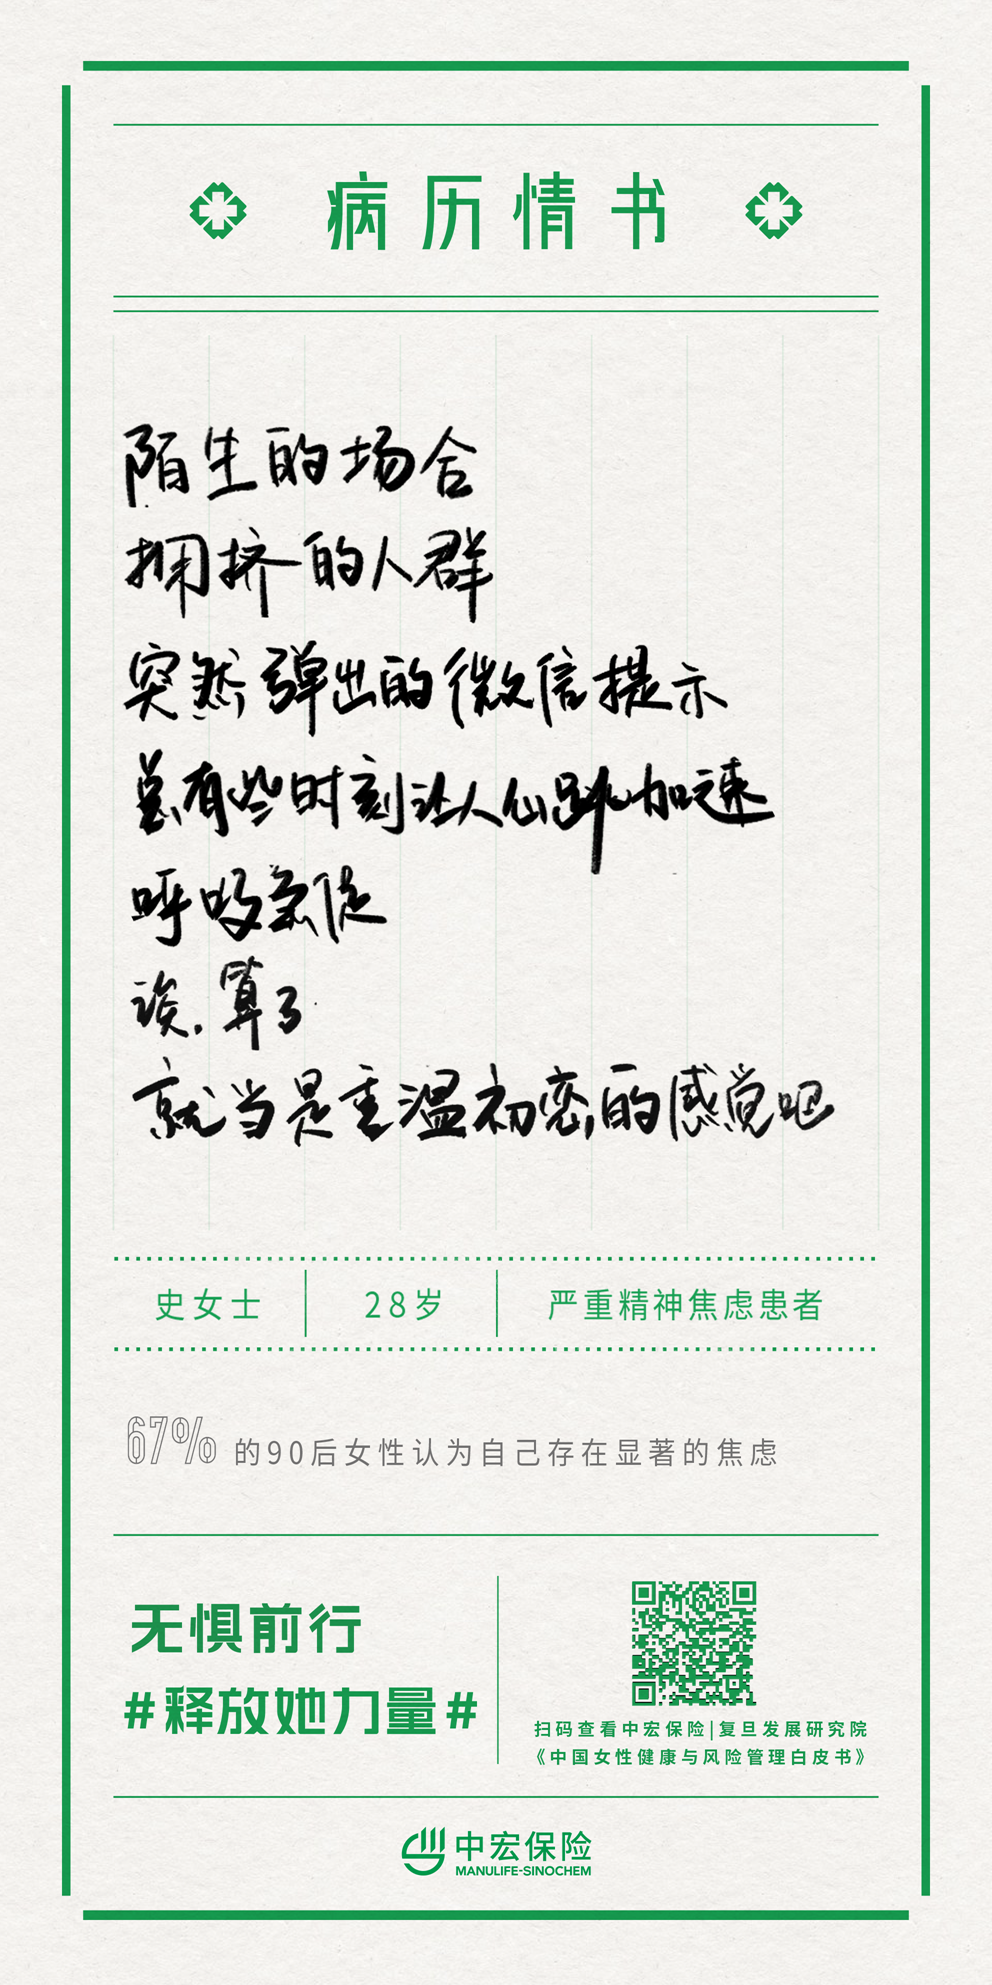 病历情书
陌生的场合
拥挤的人群
突然弹出的微信提示
总有些时刻让人心跳加速
呼吸急促
诶.算了
就当是重温初恋的感觉吧
史女士 28岁 严重精神焦虑患者
67%的90后女性认为自己存在显著的焦虑
无惧前行
#释放她力量#
扫码查看中宏保险|复旦发展研究院
《中国女性健康与风险管理白皮书》
中宏保险
MANULIFE-SINOCHEM